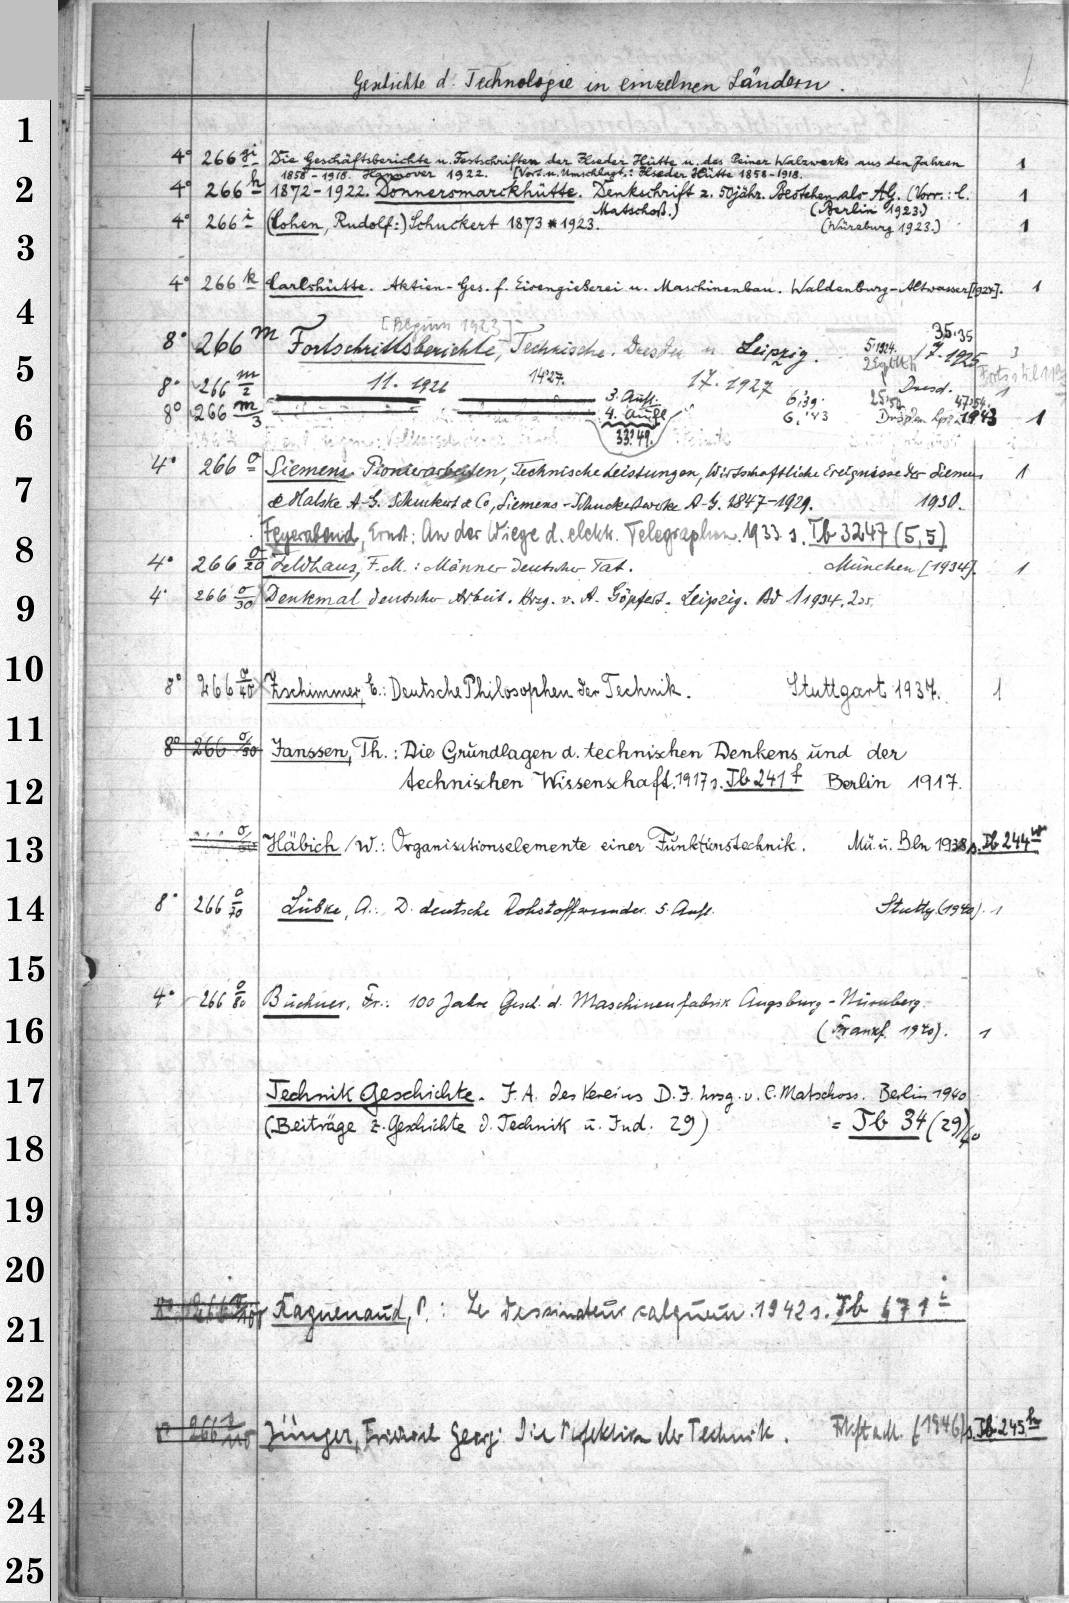 Geschichte d. Technologie in einzelnen Ländern.
1
4° 266 gi Die Geschäftsberichte u. Festschriften der Ilseder Hütte u. des Peiner Walzwerks aus den Jahren 1
1858-1918. Hannover 1922. [Vort. u. Umschlagt.: Ilseder Hütte 1858-1918.
2
4° 266 h 1872-1922. Donnersmarckhütte. Denkschrift z. 50jähr. Bestehen als AG. (Vorr.: C. 1
Matschoß.) (Berlin 1923.)
4° 266 i (Cohen, Rudolf:) Schuckert 1873 * 1923. (Würzburg 1923.) 1
3
4° 266 k Carlshütte. Aktien-Ges. f. Eisengießerei u. Maschinenbau. Waldenburg-Altwasser [1924]. 1
4
[Beginn 1923]
8° 266 m Fortschrittsberichte, Technische. Dresden u. Leipzig. 5.1924. 7.1925 35.35 3
5
8° 266 m/2 11. 1926 14.27. 17.1927 Dresd. 1
3. Aufl. 6.'39. 25.50 47.54.
8° 266 m/3 4. Aufl 6. '43 1943 1
6
33.'49.
4° 266 o Siemens. Pionierarbeiten, Technische Leistungen, Wirtschaftliche Ereignisse der Siemens 1
7
& Halske A-G. Schuckert & Co, Siemens-Schuckertwerke A-G. 1847-1929. 1930.
Feyerabend, Ernst: An der Wiege d. elektr. Telegraphen. 1933 s. Tb 3247 (5,5)
8
4° 266 o/20 Feldhaus, F. M.: Männer deutscher Tat. München [1934]. 1
9
4° 266 o/30 Denkmal deutscher Arbeit. Hrzg. v. A. Göpfert. Leipzig. Bd 1 1934, 235.
10
8° 266 o/40 Zschimmer, E.: Deutsche Philosophen der Technik. Stuttgart 1937. 1
11
8° 266 o/50 Janssen, Th.: Die Grundlagen d. technischen Denkens und der
12
technischen Wissenschaft. 1917 s. Tb 241 f Berlin 1917.
13
Häbich, W.: Organisationselemente einer Funktionstechnik. Mü. u. Bln 1938 s. Tb 244 w
14
8° 266 o/70 Lübke, A.: D. deutsche Rohstoffwunder. 5. Aufl. Stuttg. (1940). 1
15
4° 266 o/80 Büchner, Fr.: 100 Jahre Gesch. d. Maschinenfabrik Augsburg-Nürnberg.
16
(Frankf. 1940). 1
17
Technik Geschichte. I. A. des Vereins D. I. hrsg. v. C. Matschoss. Berlin 1940
(Beiträge z. Geschichte d. Technik u. Ind. 29) = Tb 34 (29)/40
18
19
20
21
Raguenaud, P.: Le dessinateur calqueur. 1942 s. Tb 671 i
22
Jünger, Friedrich Georg: Die Perfektion der Technik. Frkft a. M. (1946) s. Tb 245 hv
23
24
25